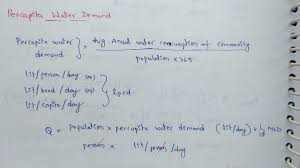 Percapita Water Demand
Percapita water demand = Avg. Annual water consumption of community
population x 365
lit/person/day (or)
lit/head/day (or) } lpcd.
lit/capita/day
Q = population x percapita water demand (lit/day) x 1/10⁶ MLD
person x lit/person/day